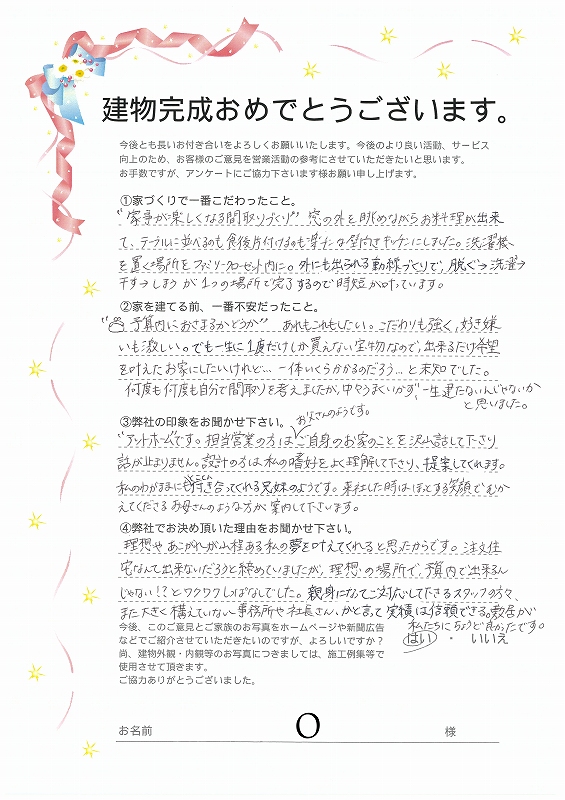 建物完成おめでとうございます。
今後とも長いお付き合いをよろしくお願いいたします。今後のより良い活動、サービス
向上のため、お客様のご意見を営業活動の参考にさせていただきたいと思います。
お手数ですが、アンケートにご協力下さいます様お願い申し上げます。
①家づくりで一番こだわったこと。
"家事が楽しくなる間取りづくり" 窓の外を眺めながらお料理が出来
て、テーブルに並べるのも食後片付けるのも楽チンな型向きキッチンにしました。洗濯機
を置く場所をファミリークローゼット内に。外にも出られる動線づくりで、脱ぐ→洗濯→
干す→しまう が1つの場所で完了するので時短が叶っています。
②家を建てる前、一番不安だったこと。
"予算内におさまるかどうか" あれもこれもしたい。こだわりも強く、好き嫌
いも激しい。でも一生に1度だけしか買えない宝物なので、出来るだけ希望
を叶えたお家にしたいけれど…一体いくらかかるのだろう…と未知でした。
何度も何度も自分で間取りを考えましたが、中々うまくいかず、一生建たないんじゃないか
と思いました。
③弊社の印象をお聞かせ下さい。
お父さんのようです。
"アットホーム"です。担当営業の方はご自身のお家のことを沢山話して下さり
話が止まりません。設計の方は私の嗜好をよく理解して下さり、提案してくれます。
私のわがままにも付き合ってくれる兄妹のようです。来社した時はほっとする笑顔でむか
えてくださるお母さんのような方が案内して下さいます。
④弊社でお決め頂いた理由をお聞かせ下さい。
理想やあこがれが山程ある私の夢を叶えてくれると思ったからです。注文住
宅なんて出来ないだろうと諦めていましたが、理想の場所で、予算内で出来るん
じゃない!?とワクワクしっぱなしでした。親身になってご対応して下さるスタッフの方々、
また大きく構えていない事務所や社長さん、かと言って実績は信頼できる。敷居が
私たちにちょうど良かったです。
今後、このご意見とご家族のお写真をホームページや新聞広告
などでご紹介させていただきたいのですが、よろしいですか?
はい ・ いいえ
尚、建物外観・内観等のお写真につきましては、施工例集等で
使用させて頂きます。
ご協力ありがとうございました。
お名前 O 様